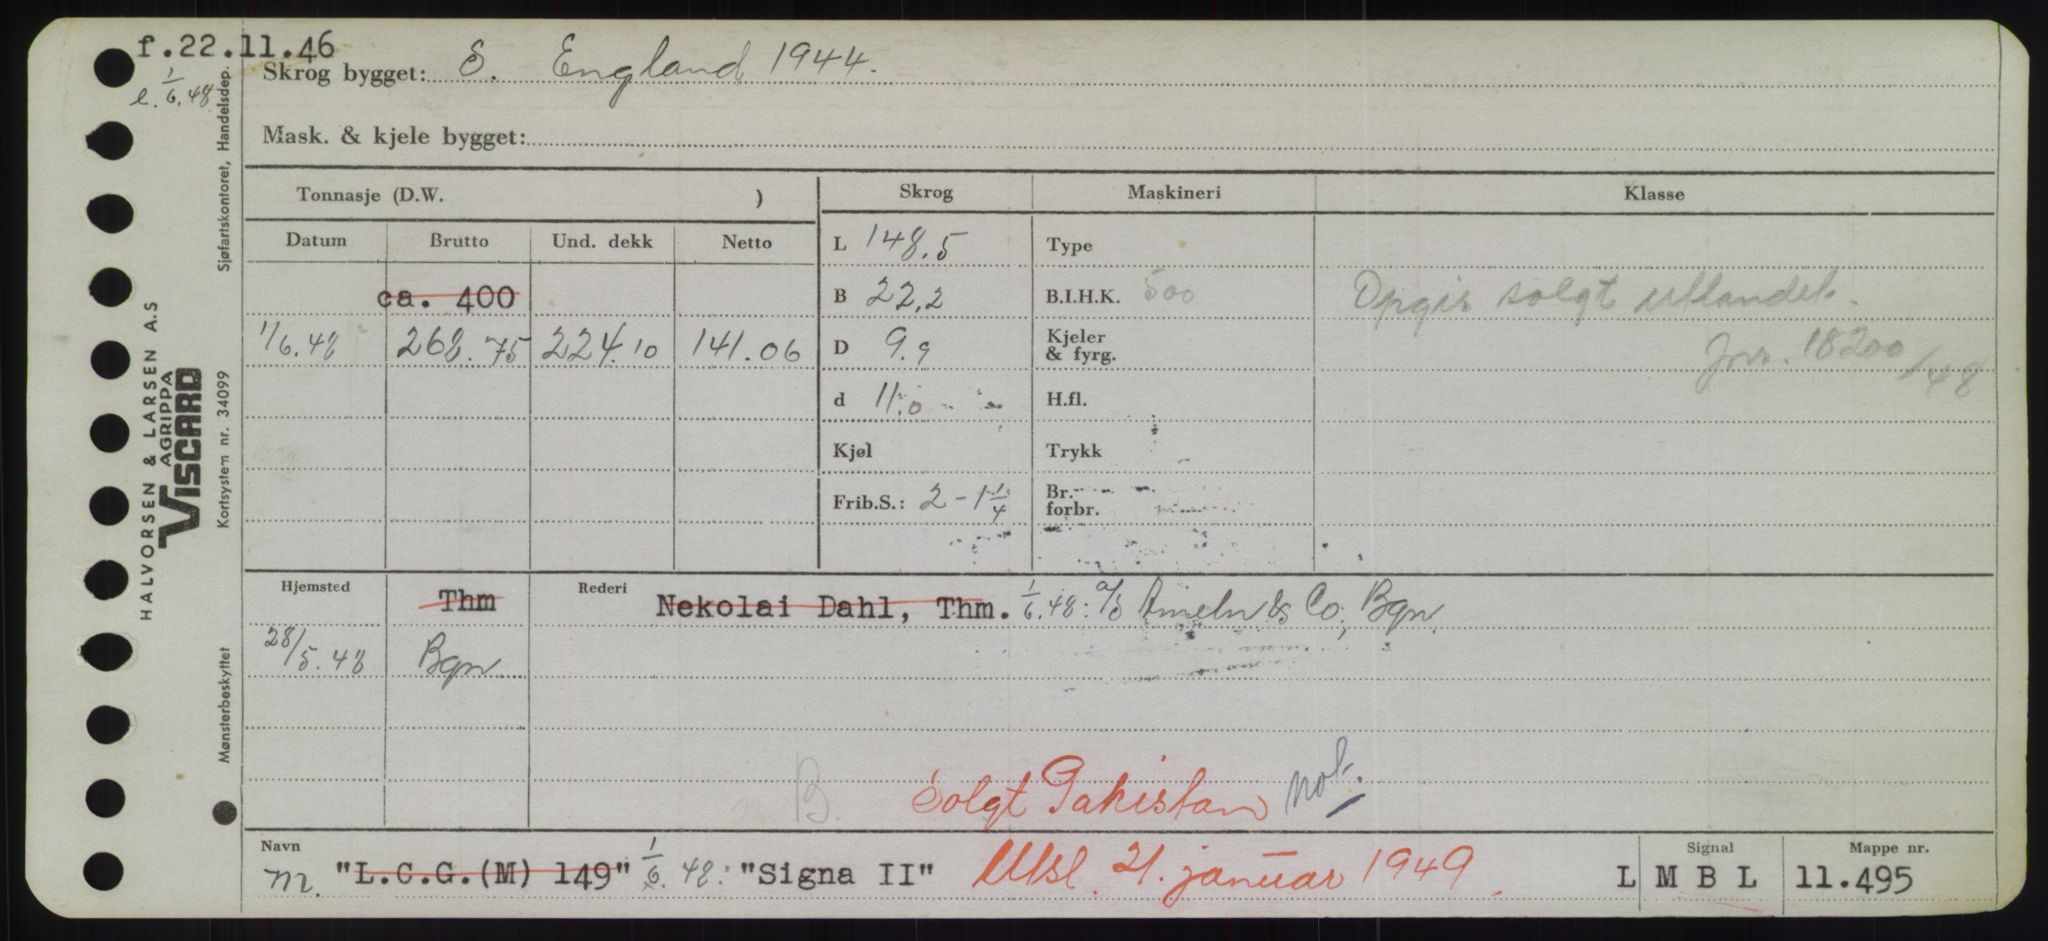 f.22.11.46
e. 1/6.48
Skrog bygget: S. England 1944.
Mask. & kjele bygget:
Tonnasje (D.W. )
Skrog
Maskineri
Klasse
Datum Brutto Und. dekk Netto
L 148.5
Type
ca. 400
B 22,2
B.I.H.K. 500
Opgis solgt utlandet.
1/6.48 268.75 224.10 141.06
D 9.9
Kjeler & fyrg.
Jnr. 18200/48
d 11.0
H.fl.
Kjøl
Trykk
Frib.S.: 2-1 1/4
Br. forbr.
Hjemsted Thm
Rederi Nekolai Dahl, Thm. 1/6.48: a/s Ameln & Co, Bgn.
28/5.48 Bgn.
B.
Solgt Pakistan not.
Navn
Signal
Mappe nr.
m. "L.C.G.(M) 149" 1/6.48: "Signa II" Utsl. 21. januar 1949.
L M B L 11.495
HALVORSEN & LARSEN A.S
AGRIPPA
VISCARD
Sjøfartskontoret, Handelsdep.
Kortsystem nr. 34099
Mønsterbeskyttet